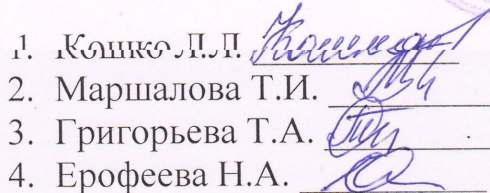 1. Кошко Л.Л.
2. Маршалова Т.И.
3. Григорьева Т.А.
4. Ерофеева Н.А.